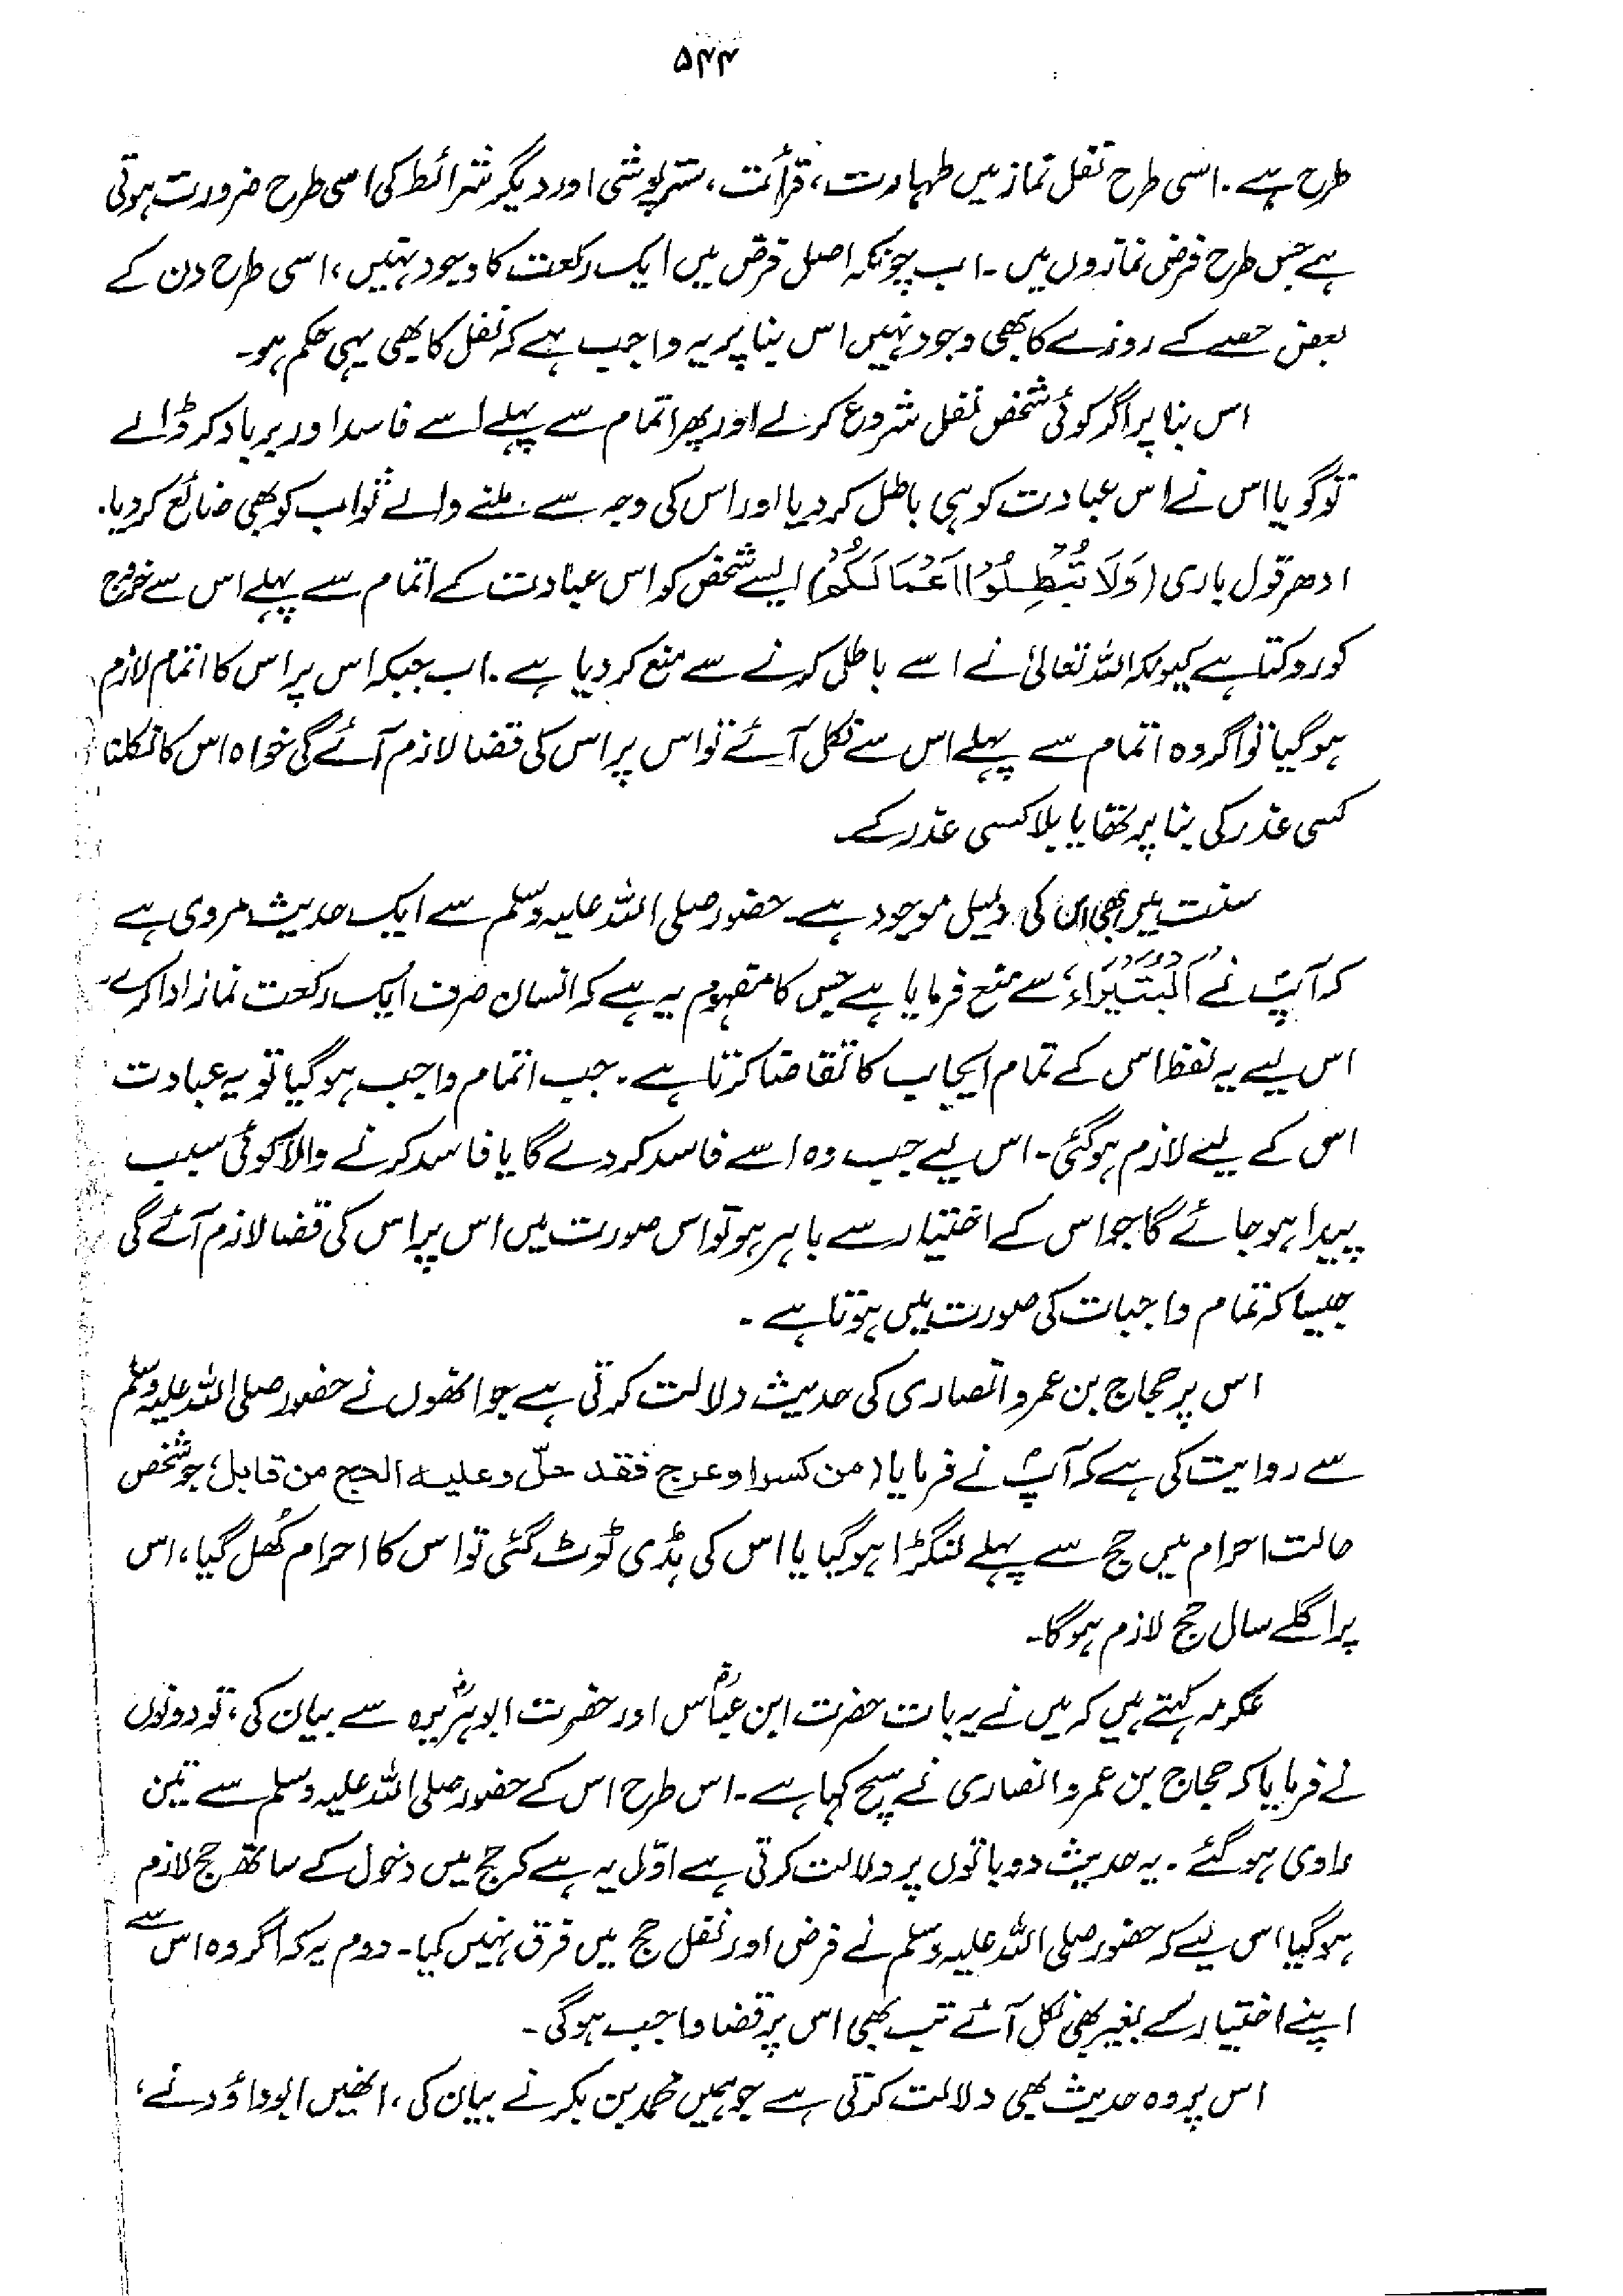 ۵۴۴
طرح ہے۔ اسی طرح نفل نماز میں طہارت، قرأت، ستر پوشی اور دیگر شرائط کی اسی طرح ضرورت ہوتی
ہے جس طرح فرض نمازوں میں۔ اب چونکہ اصل فرض میں ایک رکعت کا وجود نہیں، اسی طرح دن کے
بعض حصے کے روزے کا بھی وجود نہیں اس بنا پر یہ واجب ہے کہ نفل کا بھی یہی حکم ہو۔
اس بنا پر اگر کوئی شخص نفل شروع کرلے اور پھر اتمام سے پہلے اسے فاسد اور برباد کر ڈالے
تو گویا اس نے اس عبادت کو ہی باطل کر دیا اور اس کی وجہ سے ملنے والے ثواب کو بھی ضائع کر دیا۔
ادھر قول باری (وَلَا تُبْطِلُوْا اَعْمَالَكُمْ) ایسے شخص کو اس عبادت کے اتمام سے پہلے اس سے خروج
کو روکتا ہے کیونکہ اللہ تعالیٰ نے اسے باطل کرنے سے منع کر دیا ہے۔ اب جبکہ اس پر اس کا اتمام لازم
ہو گیا تو اگر وہ اتمام سے پہلے اس سے نکل آئے تو اس پر اس کی قضا لازم آئے گی خواہ اس کا نکلنا
کسی عذر کی بنا پر تھا یا بلا کسی عذر کے۔
سنت میں بھی اس کی دلیل موجود ہے۔ حضور صلی اللہ علیہ وسلم سے ایک حدیث مروی ہے
کہ آپؐ نے اَلْبُتَيْرَاءُ، سے منع فرمایا ہے جس کا مفہوم یہ ہے کہ انسان صرف ایک رکعت نماز ادا کرے۔
اس لیے یہ لفظ اس کے تمام ایجاب کا تقاضا کرتا ہے۔ جب اتمام واجب ہو گیا تو یہ عبادت
اس کے لیے لازم ہو گئی۔ اس لیے جب وہ اسے فاسد کر دے گا یا فاسد کرنے والا کوئی سبب
پیدا ہو جائے گا جو اس کے اختیار سے باہر ہو تو اس صورت میں اس پر اس کی قضا لازم آئے گی
جیسا کہ تمام واجبات کی صورت میں ہوتا ہے۔
اس پر حجاج بن عمرو انصاری کی حدیث دلالت کرتی ہے جو انھوں نے حضور صلی اللہ علیہ وسلم
سے روایت کی ہے کہ آپؐ نے فرمایا (من كسر او عرج فقد حلّ و عليه الحج من قابل، جو شخص
حالت احرام میں حج سے پہلے لنگڑا ہو گیا یا اس کی ہڈی ٹوٹ گئی تو اس کا احرام کُھل گیا، اس
پر اگلے سال حج لازم ہوگا۔
عکرمہ کہتے ہیں کہ میں نے یہ بات حضرت ابن عباسؓ اور حضرت ابوہریرہؓ سے بیان کی، تو دونوں
نے فرمایا کہ حجاج بن عمرو انصاری نے سچ کہا ہے۔ اس طرح اس کے حضور صلی اللہ علیہ وسلم سے تین
راوی ہو گئے۔ یہ حدیث دو باتوں پر دلالت کرتی ہے اوّل یہ ہے کہ حج میں دخول کے ساتھ حج لازم
ہو گیا اس لیے کہ حضور صلی اللہ علیہ وسلم نے فرض اور نفل حج میں فرق نہیں کیا۔ دوم یہ کہ اگر وہ اس سے
اپنے اختیار کے بغیر بھی نکل آئے تب بھی اس پر قضا واجب ہوگی۔
اس پر وہ حدیث بھی دلالت کرتی ہے جو ہمیں محمد بن بکر نے بیان کی، انھیں ابوداؤد نے،